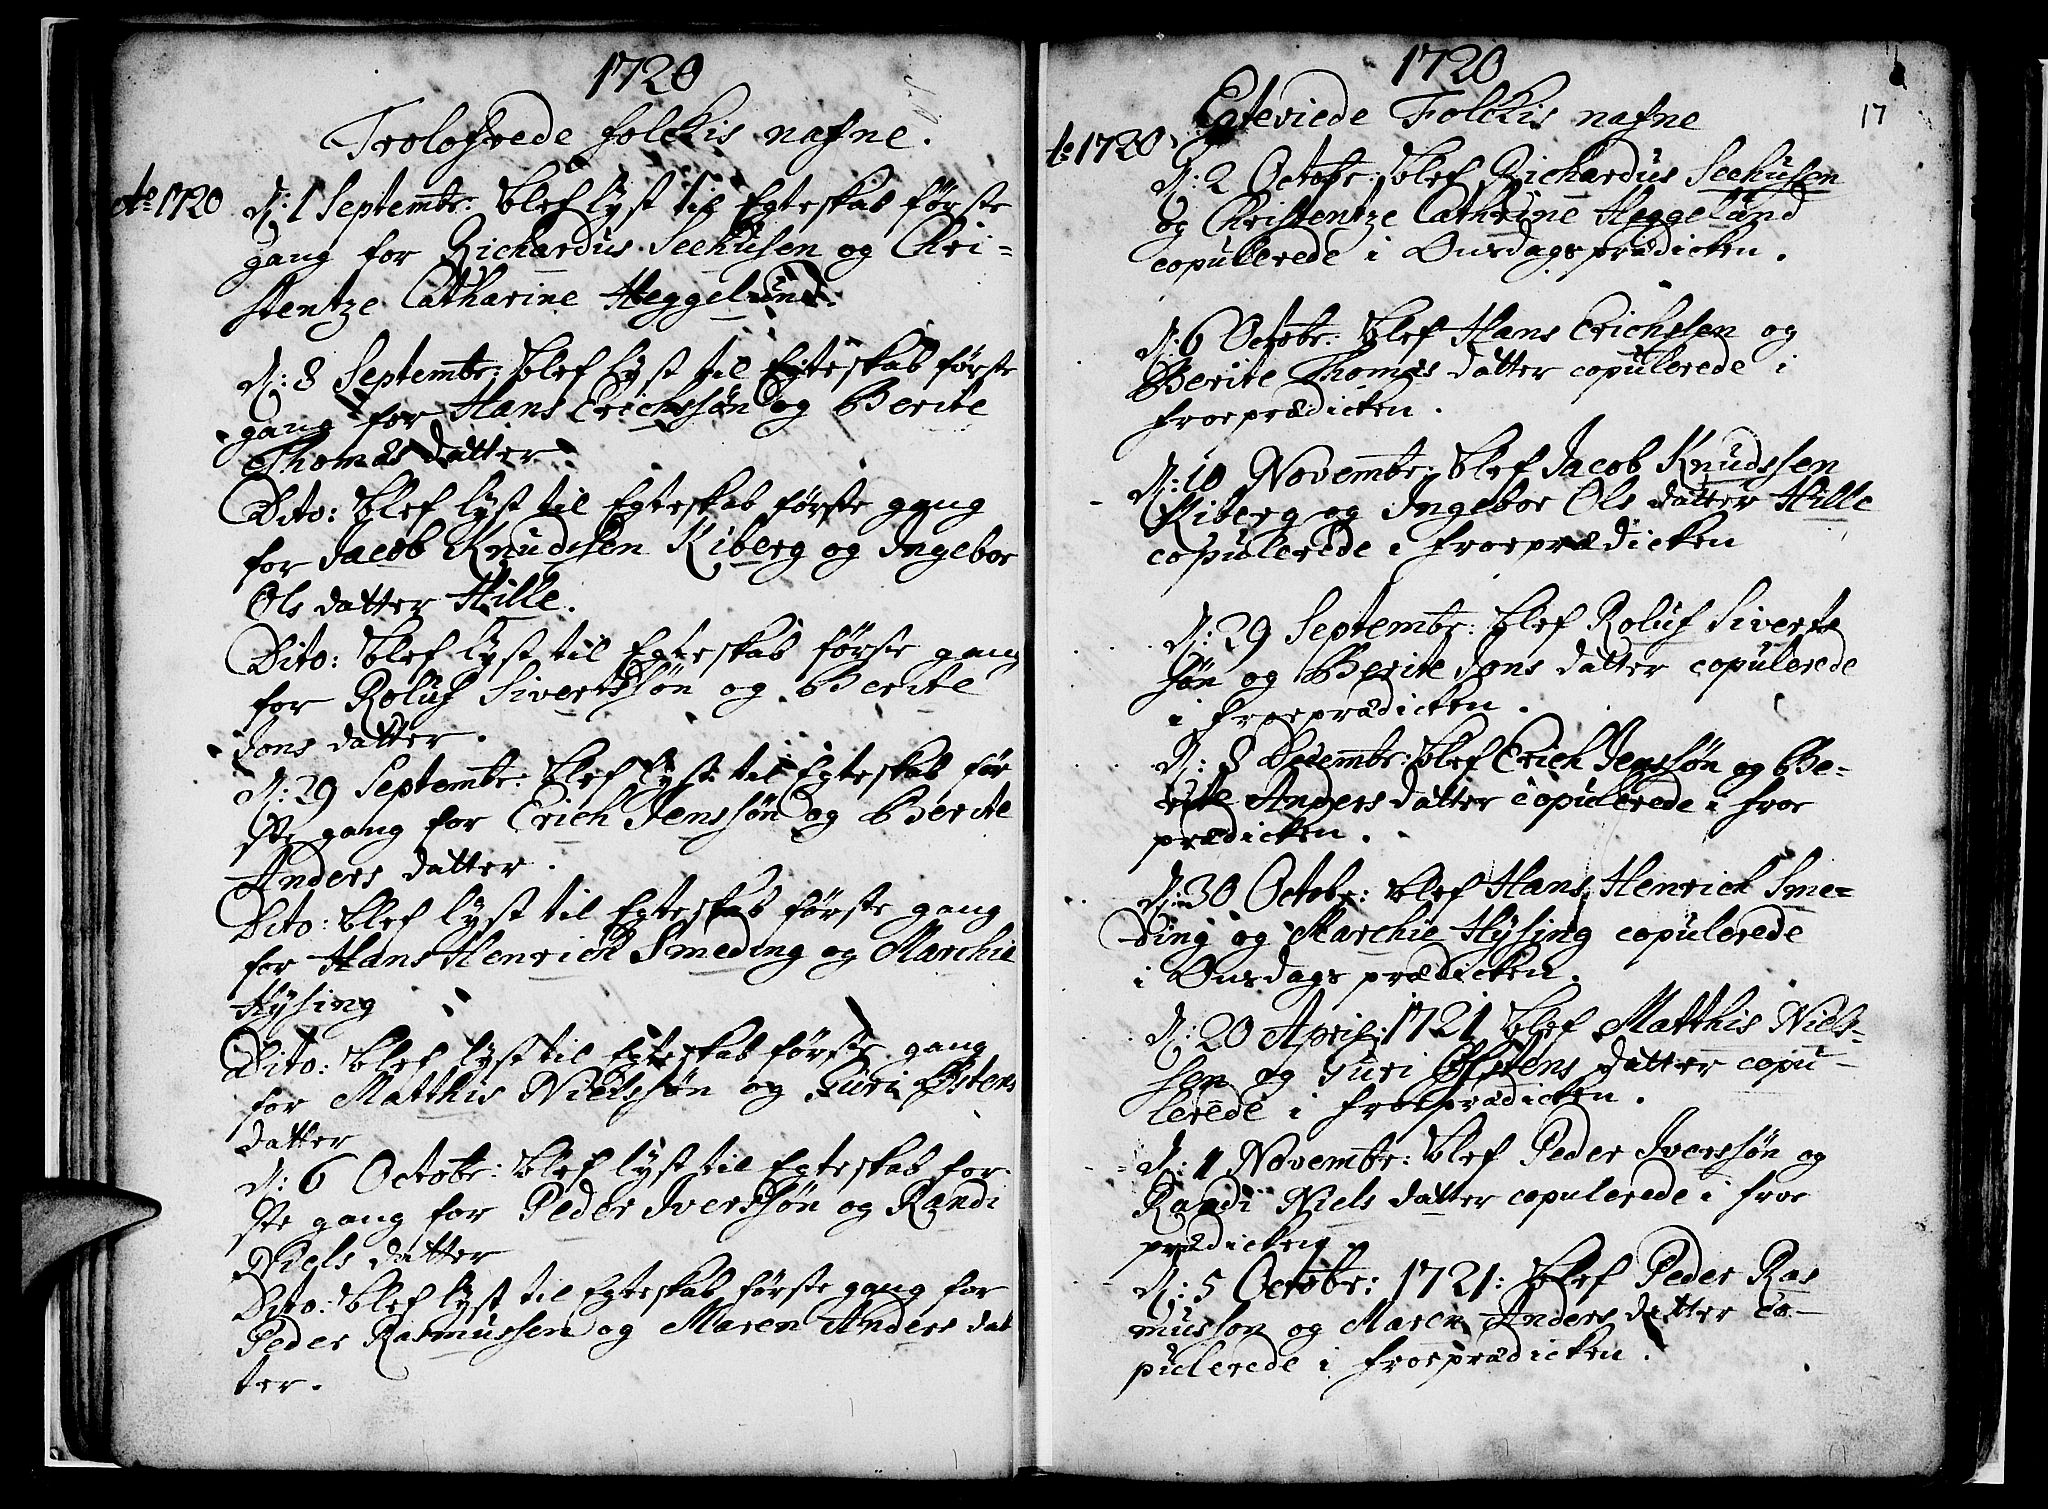 1720
Trolofvede folckis nafne.
Ao 1720 d: 1 Septembr: blef lyst til Egteskab første
gang for Richardus Seehusen og Chri-
stentze Catharine Heggelund.
d: 8 Septembr: blef lyst til Egteskab første
gang for Hans Erichssøn og Berite
Thomas datter.
Dito: blef lyst til Egteskab første gang
for Jacob Knudssen Kiberg og Ingebor
Ols datter Hille.
Dito: blef lyst til Egteskab første gang
for Roluf Sivertssøn og Berite
Jons datter.
d: 29 Septembr: blef lyst til Egteskab før
ste gang for Erich Jenssøn og Berite
Anders datter.
Dito: blef lyst til Egteskab første gang
for Hans Henrich Smeding og Marchie
Hysing
Dito: blef lyst til Egteskab første gang
for Matthis Nielssøn og Guri Østens
datter
d: 6 Octobr: blef lyst til Egteskab for
ste gang for Peder Iverssøn og Randi
Niels datter
Dito: blef lyst til Egteskab første gang for
Peder Rasmussen og Maren Anders dat
ter.
1720
17
Egteviede Folckis nafne
Ao 1720
d: 2 Octobr: blef Richardus Seehusen
og Christentze Cathrine Heggelund
copulerede i Onsdagsprædicken.
d: 6 Octobr: blef Hans Erichssen og
Berite Thomas datter copulerede i
froeprædicken.
d: 10 Novembr: blef Jacob Knudssen
Kiberg og Ingebor Ols datter Hille
copulerede i froeprædicken
d: 29 Septembr: blef Roluf Siverts
søn og Berite Jons datter copulerede
i froeprædicken.
d: 8 Decembr: blef Erich Jenssøn og Be-
rite Anders datter copulerede i froe
prædicken.
d: 30 Octobr: blef Hans Henrich Sme-
ding og Marchie Hysing copulerede
i Onsdags prædicken.
d: 20 April: 1721 blef Matthis Niels-
sen og Guri Østens datter copu-
lerede i froeprædicken.
d: 1 Novembr: blef Peder Iverssøn og
Randi Niels datter copulerede i froe
prædicken
d: 5 Octobr: 1721: blef Peder Ras
musson og Maren Anders datter co-
pulerede i froeprædicken.